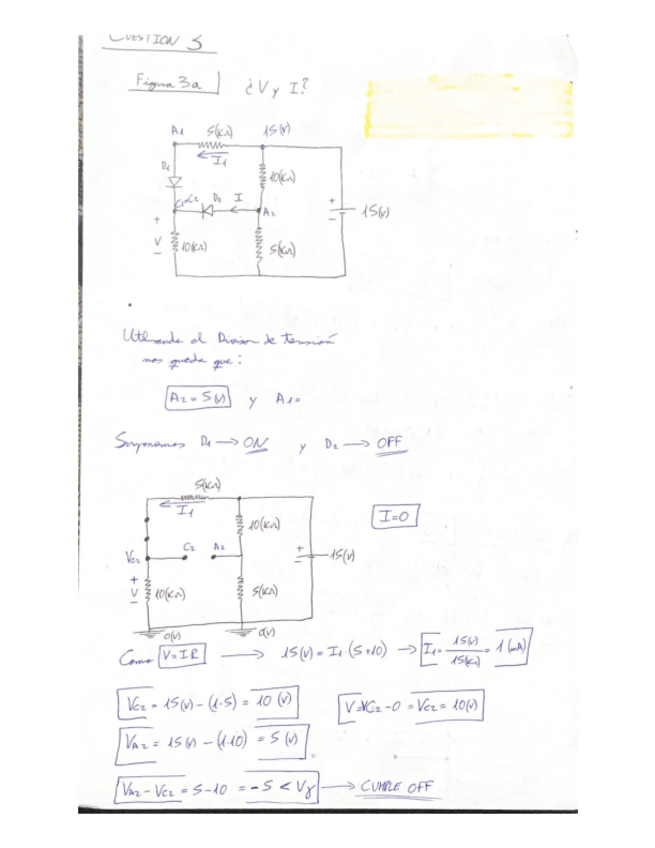 CUESTION 3
Figura 3a ¿V y I?
A1 5(KΩ) 15(V)
I1
D1
10(KΩ)
C1=C2 D2 I A2
+
-
15(V)
+
V
-
10(KΩ) 5(KΩ)
Utilizando el Divisor de tensión
nos queda que:
A2 = 5(V) y A1=
Suponemos D1 → ON y D2 → OFF
5(KΩ)
I1
10(KΩ)
I=0
VC2 C2 A2
+
-
15(V)
+
V
-
10(KΩ) 5(KΩ)
0(V) 0(V)
Como V=I·R → 15(V) = I1·(5+10) → I1= 15(V)/15(KΩ) = 1(mA)
VC2 = 15(V) - (1·5) = 10(V) V=VC2-0 = VC2 = 10(V)
VA2 = 15(V) - (1·10) = 5(V)
VA2 - VC2 = 5-10 = -5 < Vγ → CUMPLE OFF